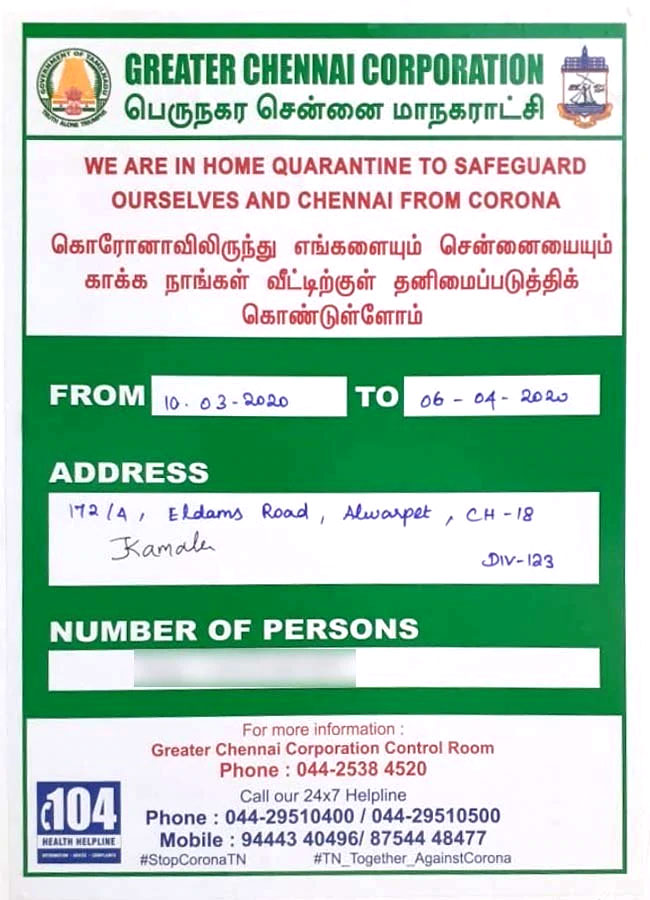 GREATER CHENNAI CORPORATION
பெருநகர சென்னை மாநகராட்சி
WE ARE IN HOME QUARANTINE TO SAFEGUARD
OURSELVES AND CHENNAI FROM CORONA
கொரோனாவிலிருந்து எங்களையும் சென்னையையும்
காக்க நாங்கள் வீட்டிற்குள் தனிமைப்படுத்திக்
கொண்டுள்ளோம்
FROM 10.03-2020 TO 06-04-2020
ADDRESS
172/A, Eldams Road, Alwarpet, CH-18
DIV-123
NUMBER OF PERSONS
For more information :
Greater Chennai Corporation Control Room
Phone : 044-2538 4520
Call our 24x7 Helpline
104
HEALTH HELPLINE
Phone : 044-29510400 / 044-29510500
Mobile : 94443 40496/ 87544 48477
#StopCoronaTN #TN_Together_AgainstCorona